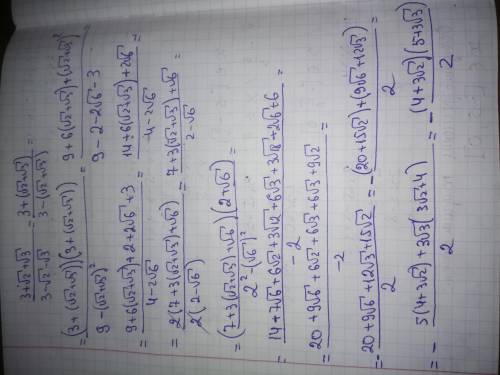 3+√2+√3 / 3-√2-√3 = 3+(√2+√3) / 3-(√2+√3) =
= (3+(√2+√3))(3+(√2+√3)) / 9-(√2+√3)² = 9+6(√2+√3)+(√2+√3)² / 9-2-2√6-3
= 9+6(√2+√3)+2+2√6+3 / 4-2√6 = 14+6(√2+√3)+2√6 / 4-2√6 =
= 2(7+3(√2+√3)+√6) / 2(2-√6) = 7+3(√2+√3)+√6 / 2-√6 =
= (7+3(√2+√3)+√6)(2+√6) / 2²-(√6)² =
= 14+7√6+6√2+3√12+6√3+3√18+2√6+6 / -2 =
= 20+9√6+6√2+6√3+6√3+9√2 / -2 =
= - 20+9√6+12√3+15√2 / 2 = - (20+15√2)+(9√6+12√3) / 2 =
= - 5(4+3√2)+3√3(3√2+4) / 2 = - (4+3√2)(5+3√3) / 2